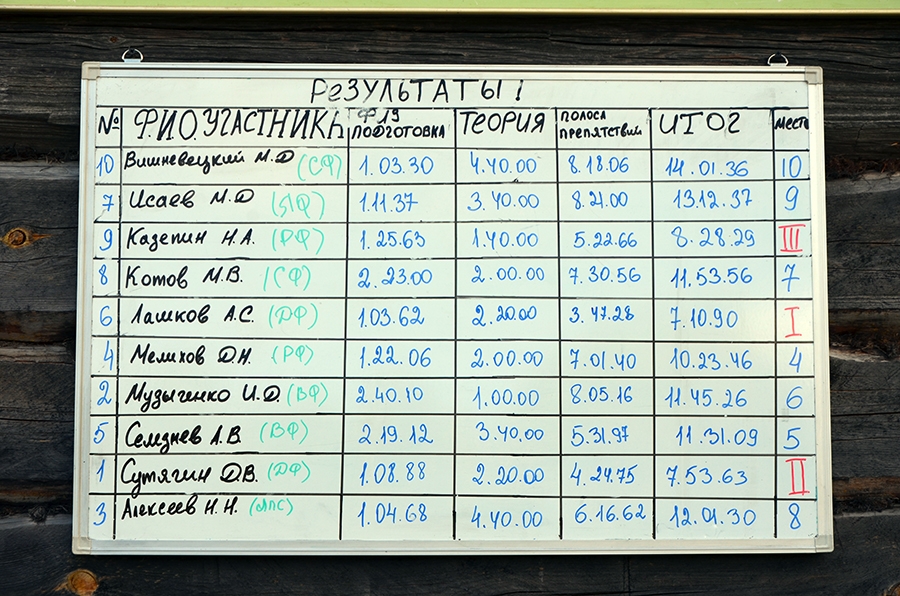 РЕЗУЛЬТАТЫ!
№ Ф.И.О. УЧАСТНИКА ПОДГОТОВКА ТЕОРИЯ ПОЛОСА ПРЕПЯТСТВИЙ ИТОГ МЕСТО
10 Вишневецкий М.Д (СФ) 1.03.30 4.40.00 8.18.06 14.01.36 10
7 Исаев М.Д 1.11.37 3.40.00 8.21.00 13.12.37 9
9 Казепин Н.А. (РФ) 1.25.63 1.40.00 5.22.66 8.28.29 III
8 Котов М.В. (СФ) 2.23.00 2.00.00 7.30.56 11.53.56 7
6 Лашков А.С. (DФ) 1.03.62 2.20.00 3.47.28 7.10.90 I
4 Мелихов D.Н. (РФ) 1.22.06 2.00.00 7.01.40 10.23.46 4
2 Музыченко И.D (ВФ) 2.40.10 1.00.00 8.05.16 11.45.26 6
5 Селезнев А.В (ВФ) 2.19.12 3.40.00 5.31.97 11.31.09 5
1 Сутягин D.В. (DФ) 1.08.88 2.20.00 4.24.75 7.53.63 II
3 Алексеев Н.Н. 1.04.68 4.40.00 6.16.62 12.01.30 8